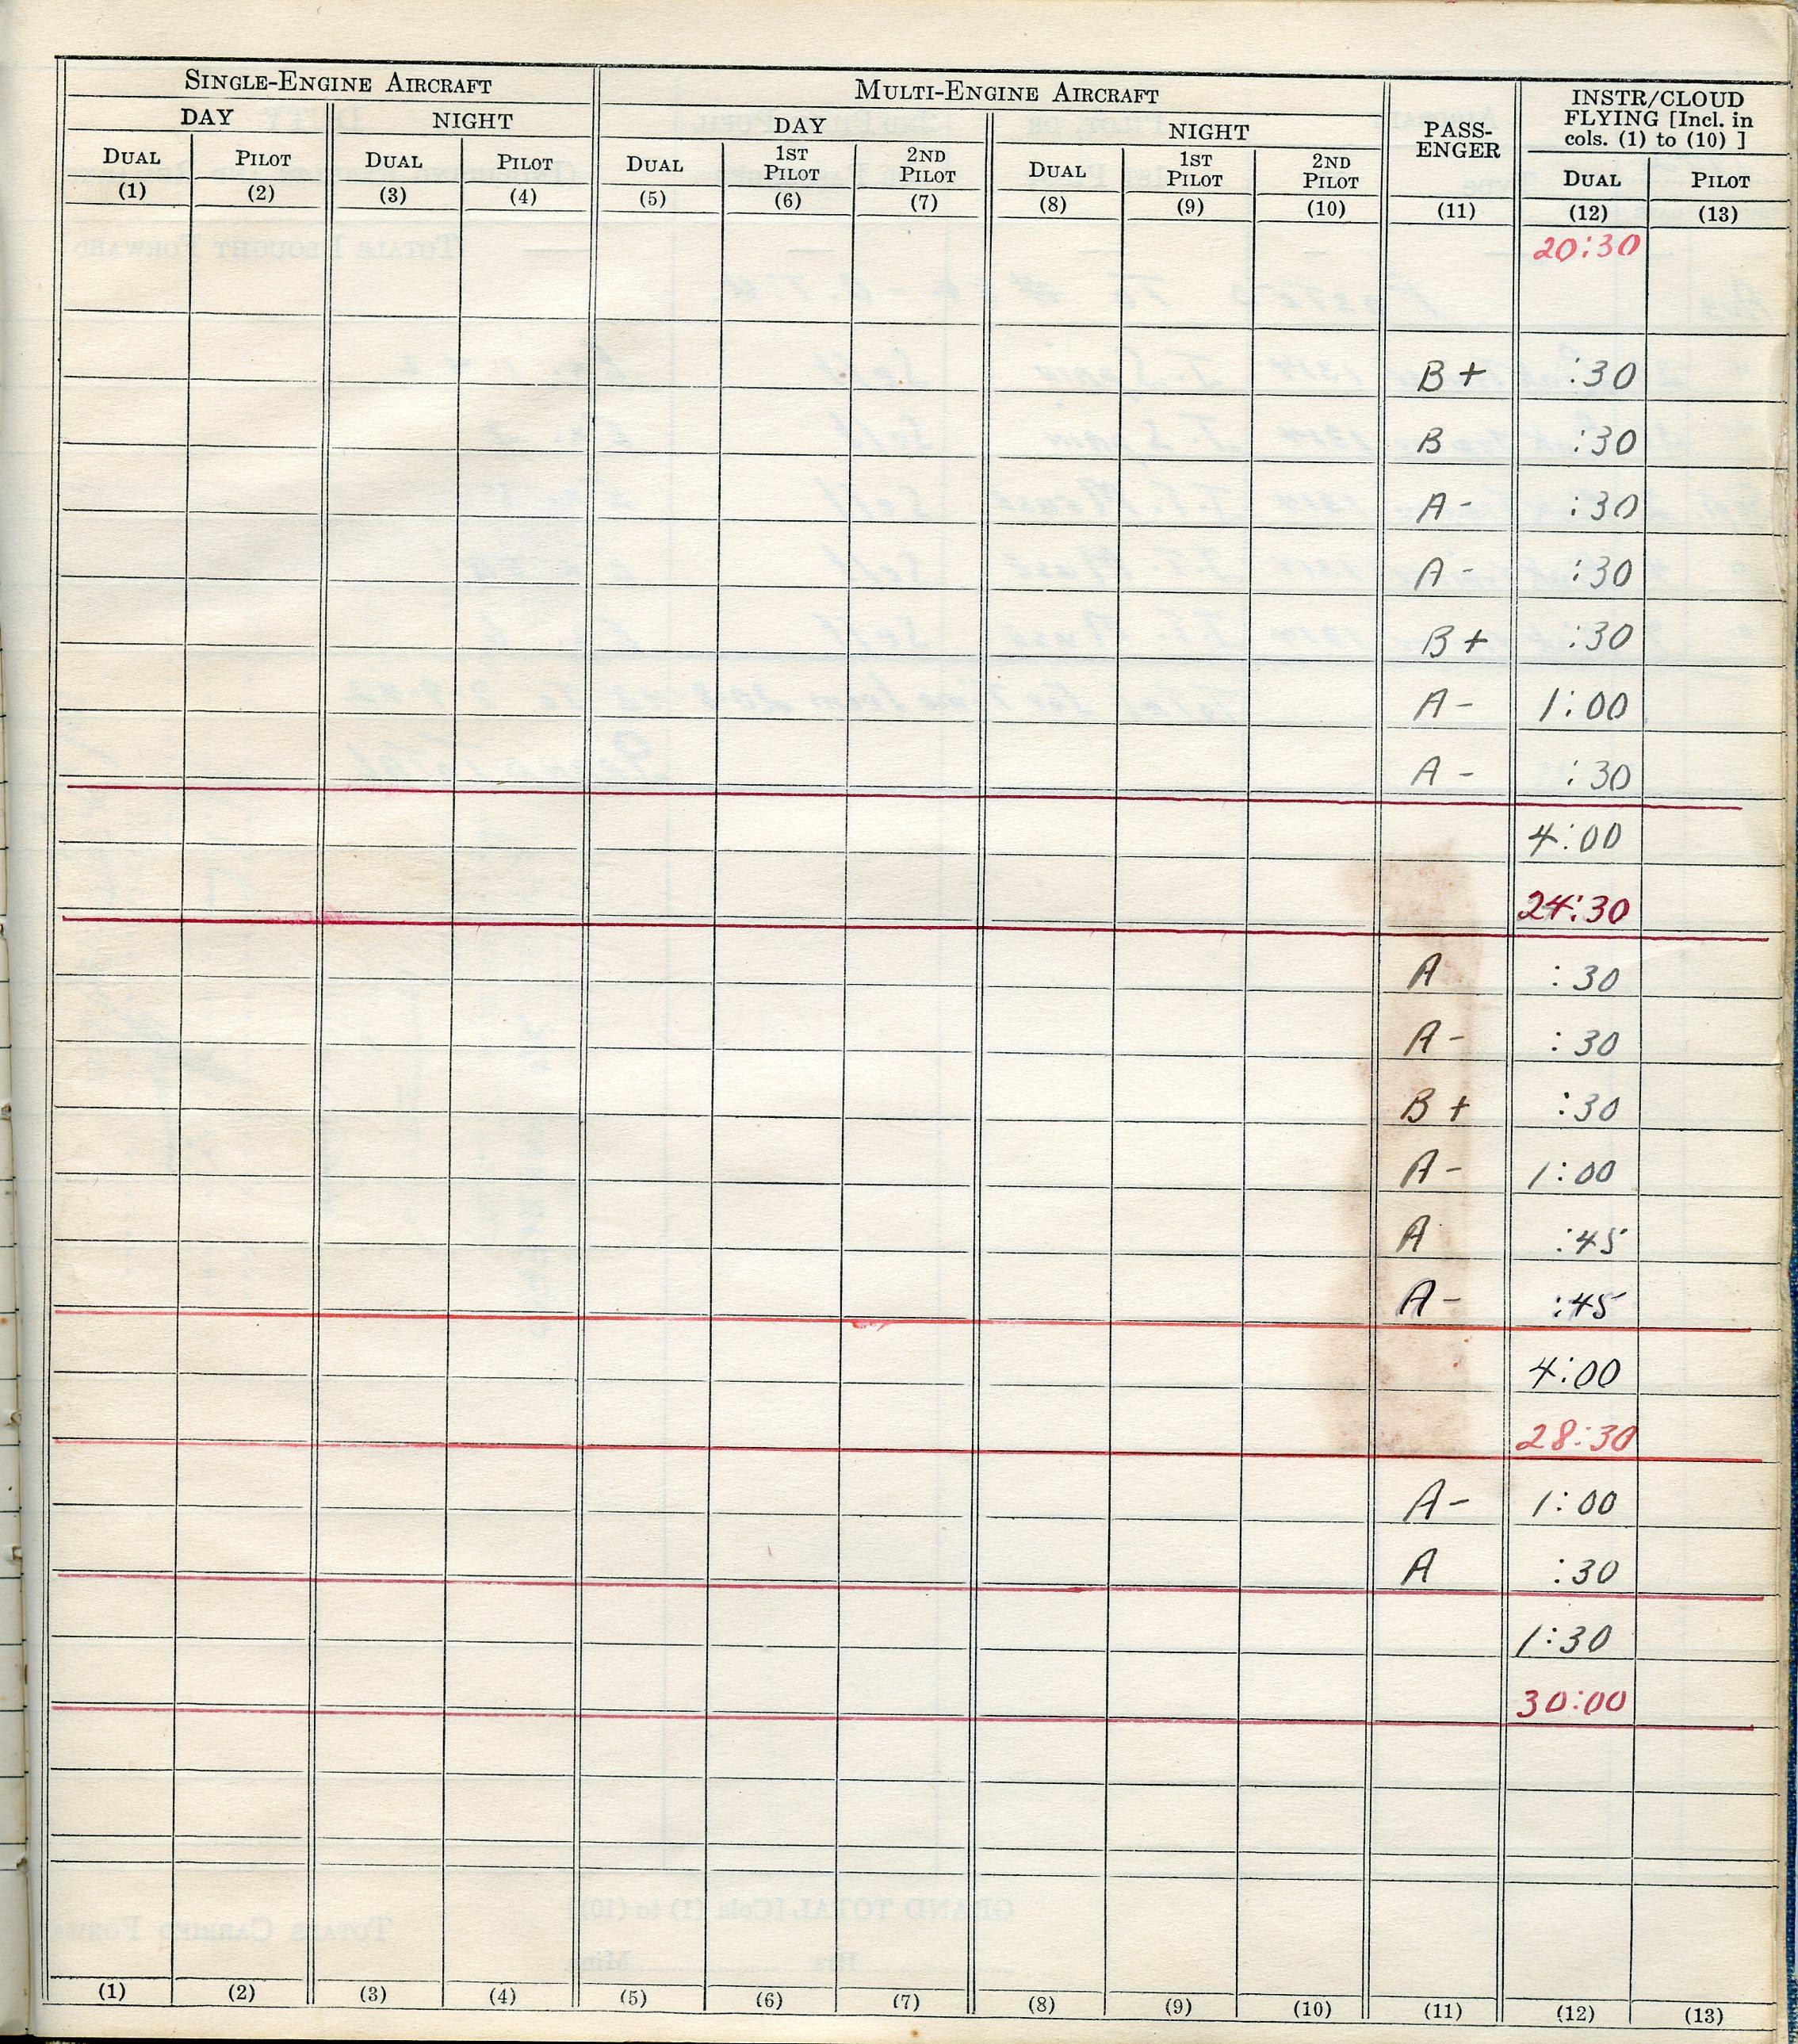 SINGLE-ENGINE AIRCRAFT MULTI-ENGINE AIRCRAFT PASS-ENGER INSTR/CLOUD FLYING [Incl. in cols. (1) to (10) ]
DAY NIGHT DAY NIGHT
DUAL PILOT DUAL PILOT DUAL 1ST PILOT 2ND PILOT DUAL 1ST PILOT 2ND PILOT DUAL PILOT
(1) (2) (3) (4) (5) (6) (7) (8) (9) (10) (11) (12) (13)
20:30
B + :30
B :30
A - :30
A - :30
B + :30
A - 1:00
A - :30
4:00
24:30
A :30
A - :30
B + :30
A - 1:00
A :45
A - :45
4:00
28:30
A - 1:00
A :30
1:30
30:00
(1) (2) (3) (4) (5) (6) (7) (8) (9) (10) (11) (12) (13)